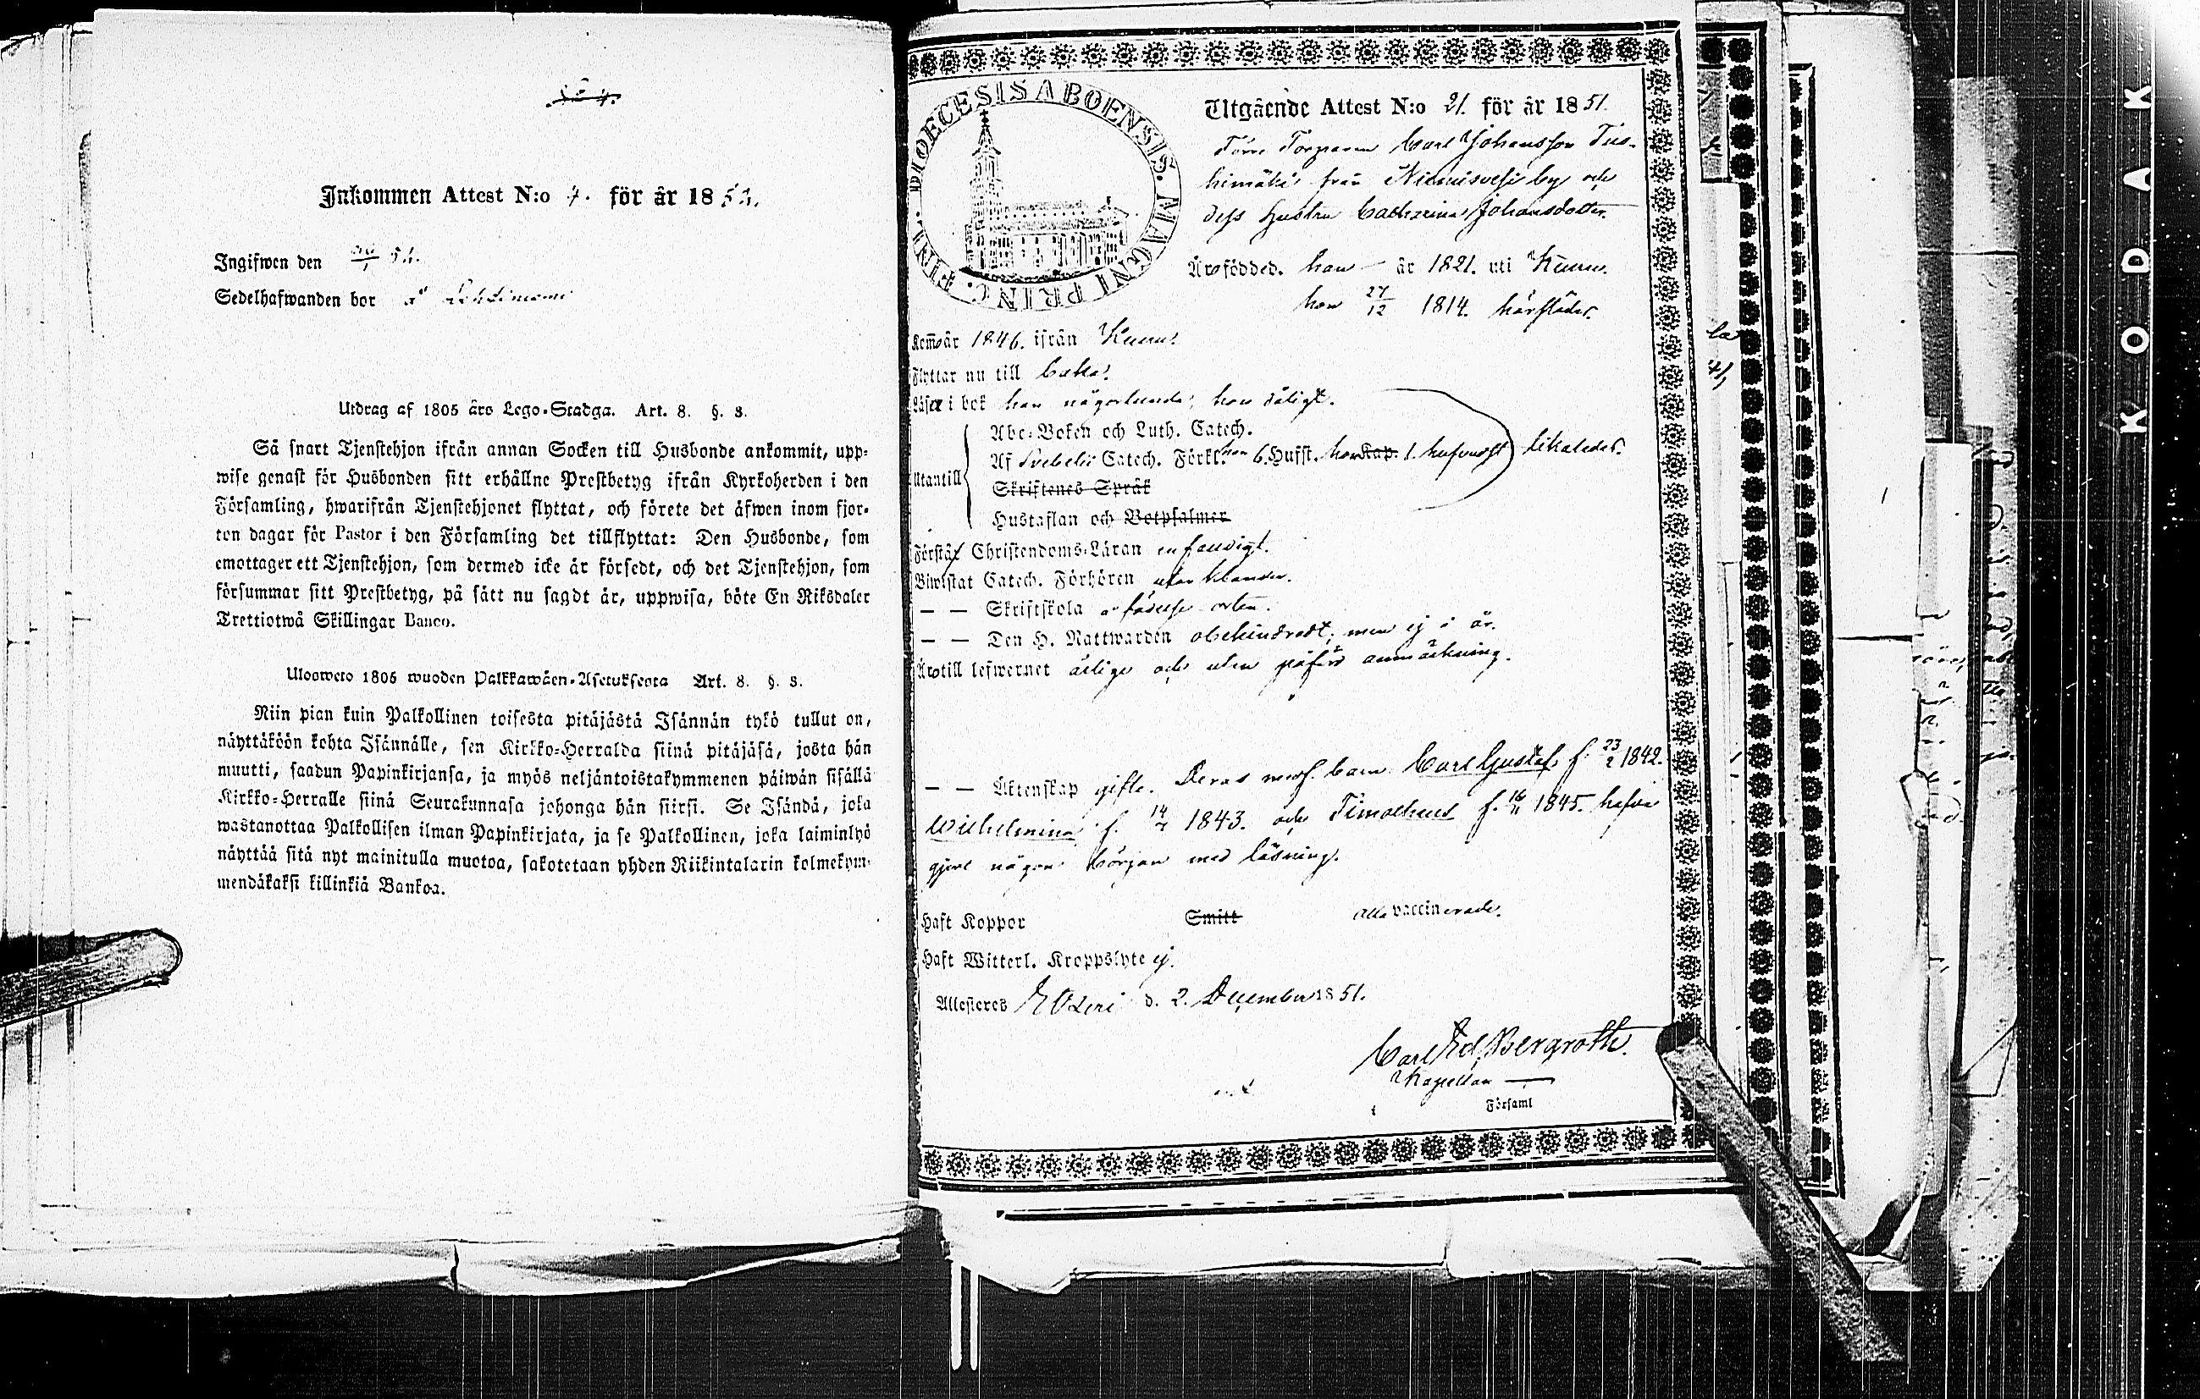 Inkommen Attest N:o 4. för år 1852.
Ingifwen den 52.
Sedelhafwanden bor å
Utdrag af 1805 års Lego-Stadga. Art. 8. §. 8.
Så snart Tjenstehjon ifrån annan Socken till Husbonde ankommit, upp-
wise genast för Husbonden sitt erhållne Prestbetyg ifrån Kyrkoherden i den
Församling, hwarifrån Tjenstehjonet flyttat, och förete det äfwen inom fjor-
ton dagar för Pastor i den Församling det tillflyttat: Den Husbonde, som
emottager ett Tjenstehjon, som dermed icke är försedt, och det Tjenstehjon, som
försummar sitt Prestbetyg, på sätt nu sagdt är, uppwisa, böte En Riksdaler
Trettiotwå Skillingar Banco.
Ulosweto 1805 wuoden Palkkawäen-Asetuksesta Art. 8. §. 8.
Niin pian kuin Palkollinen toisesta pitäjästä Isännän tykö tullut on,
näyttäköön kohta Isännälle, sen Kirkko-Herralda siinä pitäjäsä, josta hän
muutti, saadun Papinkirjansa, ja myös neljäntoistakymmenen päiwän sisällä
Kirkko-Herralle siinä Seurakunnasa johonga hän siirsi. Se Isändä, joka
wastanottaa Palkollisen ilman Papinkirjata, ja se Palkollinen, joka laiminlyö
näyttää sitä nyt mainitulla muotoa, sakotetaan yhden Riikintalarin kolmekym-
mendäkaksi killinkiä Bankoa.
DIOECESIS ABOENSIS. MAGNI PRINC. FINL.
Utgående Attest N:o 21. för år 1851.
Förre Torparen Carl Johansson Tus-
kimäki från Niemisvesi by och
dess hustru Catharina Johansdotter.
Äro födde d. han — år 1821. uti Kuru.
hon 27/12 1814. härstädes.
Kom år 1846. ifrån Kuru.
Flyttar nu till
Läser i bok han någorlunda, hon dåligt.
Utantill
Abc-Boken och Luth. Catech.
Af Svebelii Catech. Förkl. han 6. Hufst. hon Kap. 1. hufvudst likaledes.
Skriftenes Språk
Hustaflan och Botpsalmer
Förstå Christendoms-Läran enfaldigt.
Biwistat Catech. Förhören utan klander.
— — Skriftskola å födelse orten.
— — Den H. Nattwarden obehindradt, men ej i år.
Äro till lefwernet ärlige och utan påförd anmärkning.
— — Äktenskap gifte. Deras barn Carl Gustaf f. 23/2 1842.
Wilhelmina f. 1843. och Timotheus f. 1845. hafva
gjort någon början med läsning.
Haft Koppor Smitt alla vaccinerade.
Haft Witterl. Kroppslyte ej.
Attesteras Etseri d. 2. December 1851.
Carl Ed. Bergroth.
Kapellan —
Församl
KODAK